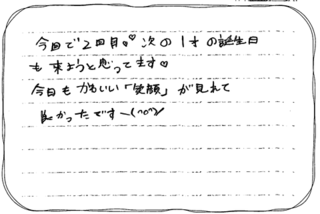 今回で2回目♡♡ 次の1才の誕生日
も来ようと思ってます♡
今日もかわいい「笑顔」が見れて
良かったです〜(^o^)/